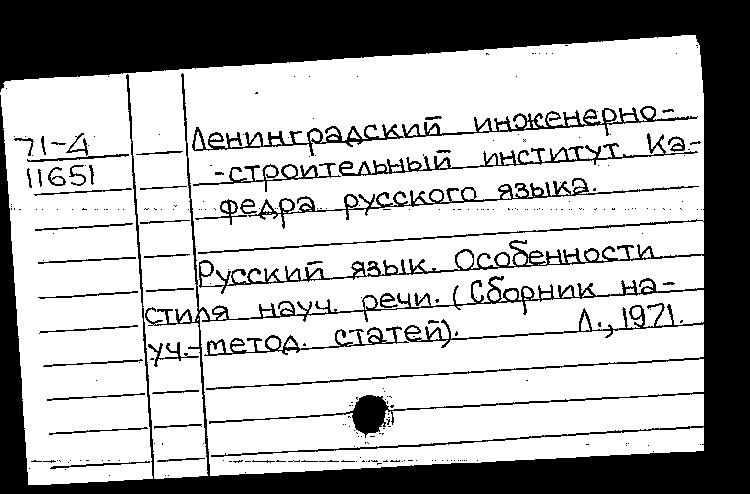 71-4
11651
Ленинградский инженерно-
-строительный институт. Ка-
федра русского языка.
Русский язык. Особенности
стиля науч. речи. (Сборник на-
уч.-метод. статей). Л., 1971.